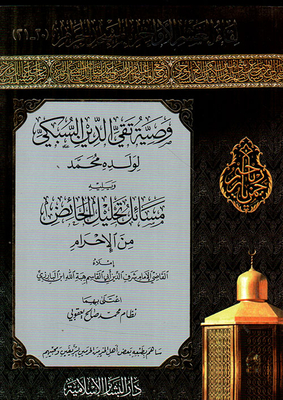 لقاء العشر الأواخر بالمسجد الحرام (٣٠-٣١)
وصية تقي الدين السبكي
لولده محمد
ويليه
مسائل تحليل الحائض
من الإحرام
إملاء
القاضي الإمام شرف الدين أبي القاسم هبة الله ابن البارزي
اعتنى بهما
نظام محمد صالح يعقوبي
ساهم بطبعه بعض أهل الخير من الحرمين الشريفين ومحبيهم
دار البشائر الإسلامية